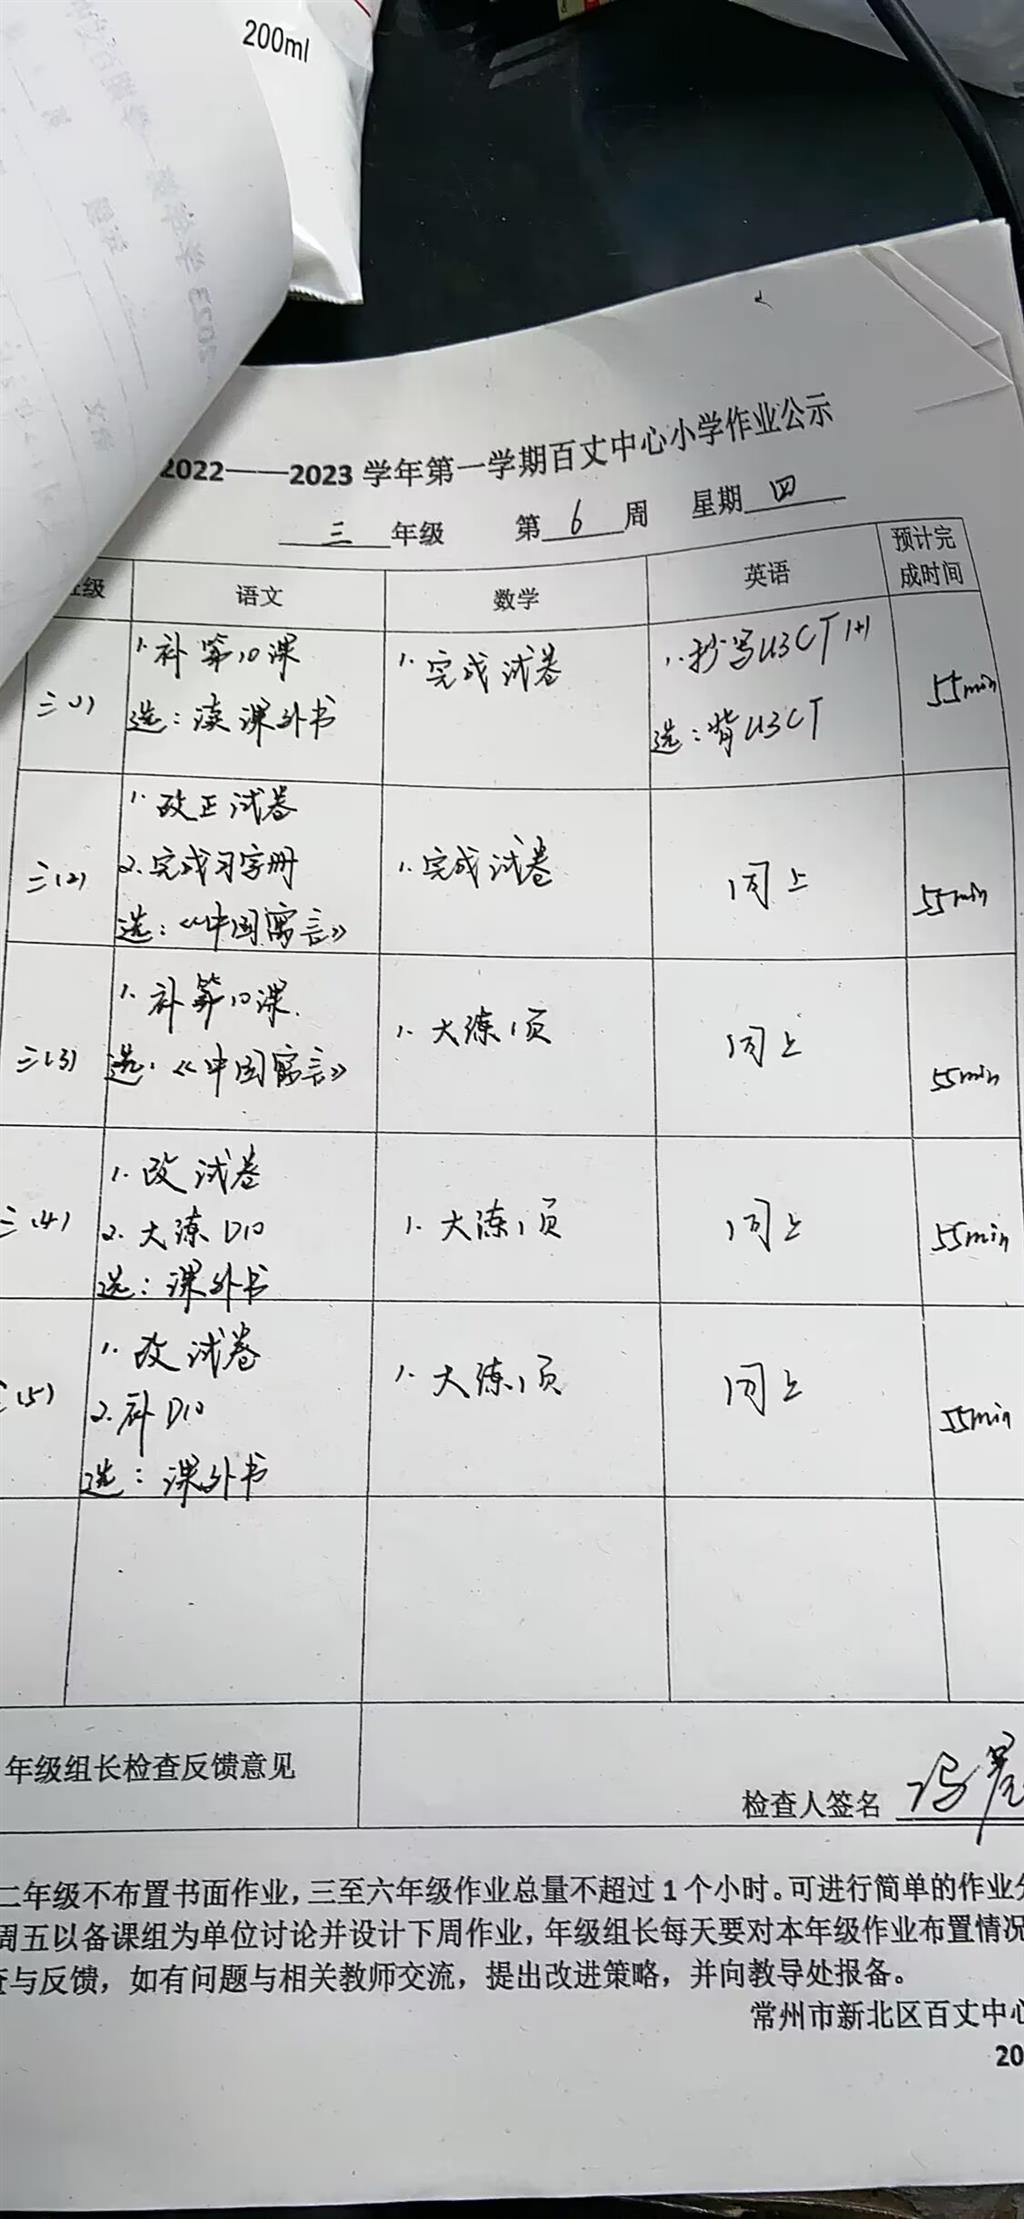 200ml
2022——2023 学年第一学期百丈中心小学作业公示
三 年级 第 6 周 星期 四
级 语文 数学 英语 预计完成时间
三(1)
1.补第10课
选：读课外书
1.完成试卷
1.抄写U3CT 1+1
选：背U3CT
55min
三(2)
1.改正试卷
2.完成习字册
选：《中国寓言》
1.完成试卷
同上
55min
三(3)
1.补第10课.
选：《中国寓言》
1.大练1页
同上
55min
三(4)
1.改试卷
2.大练D10
选：课外书
1.大练1页
同上
55min
(5)
1.改试卷
2.补D10
选：课外书
1.大练1页
同上
55min
年级组长检查反馈意见
检查人签名 冯
二年级不布置书面作业，三至六年级作业总量不超过 1 个小时。可进行简单的作业
周五以备课组为单位讨论并设计下周作业，年级组长每天要对本年级作业布置情况
与反馈，如有问题与相关教师交流，提出改进策略，并向教导处报备。
常州市新北区百丈中心
20